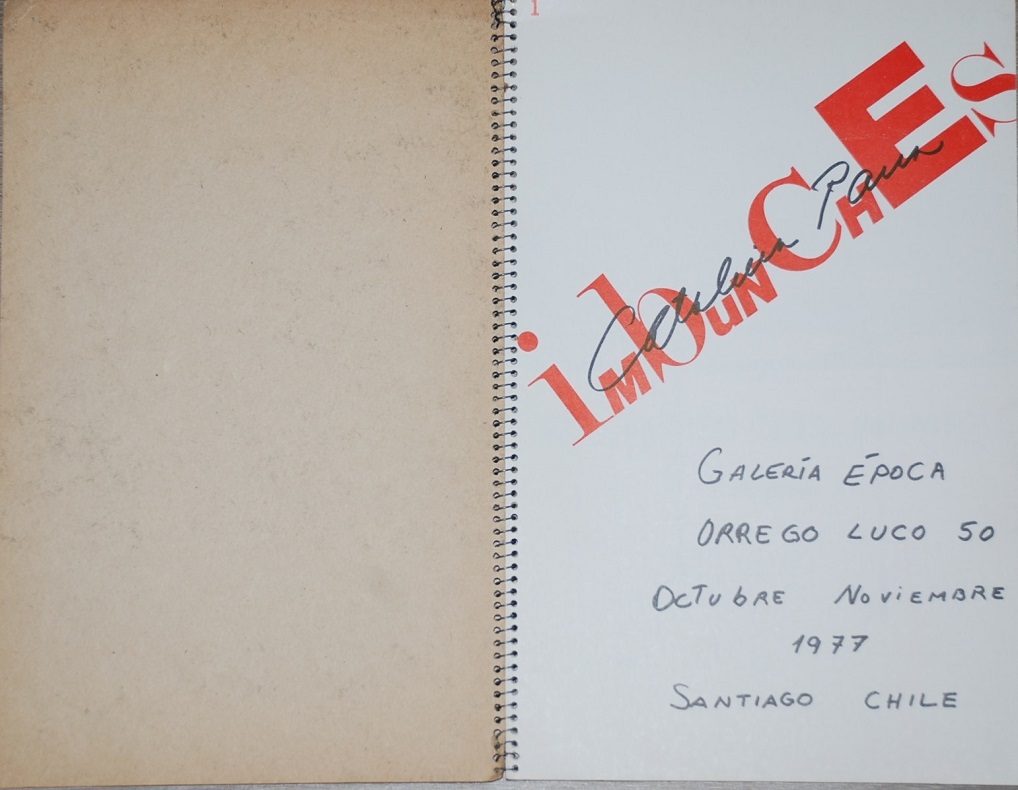 1
iMbuNCHEs
Catalina Parra
GALERÍA ÉPOCA
ORREGO LUCO 50
OCTUbRE NOViEMBRE
1977
SANTIAGO CHILE